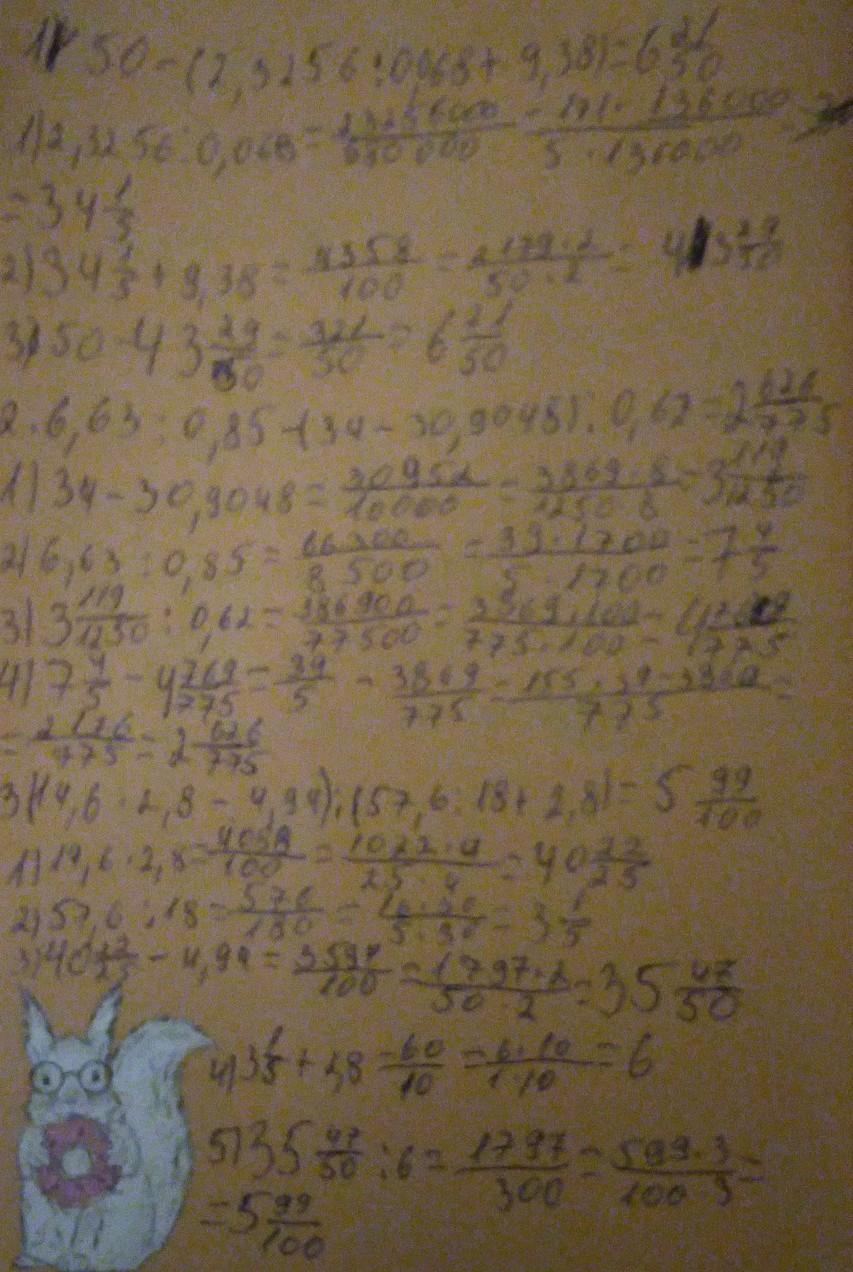 1) 50-(2,3256:0,068+9,38)=6 21/50
1) 2,3256:0,068=23256000/680000=171·136000/5·136000=
=34 1/5
2) 34 1/5+9,38=4358/100=2179·2/50·2=43 29/50
3) 50-43 29/50=321/50=6 21/50
2. 6,63:0,85-(34-30,9048):0,62=2 626/775
1) 34-30,9048=30952/10000=3869·8/1250·8=3 119/1250
2) 6,63:0,85=66300/8500=39·1700/5·1700=7 4/5
3) 3 119/1250:0,62=386900/77500=3869·100/775·100=4 769/775
4) 7 4/5-4 769/775=39/5-3869/775=155·39-3869/775=
=2176/775=2 626/775
3) (14,6·2,8-4,94):(57,6:18+2,8)=5 99/100
1) 14,6·2,8=4088/100=1022·4/25·4=40 22/25
2) 57,6:18=576/180=16·36/5·36=3 1/5
3) 40 22/25-4,94=3594/100=1797·2/50·2=35 47/50
4) 3 1/5+2,8=60/10=6·10/1·10=6
5) 35 47/50:6=1797/300=599·3/100·3=
=5 99/100